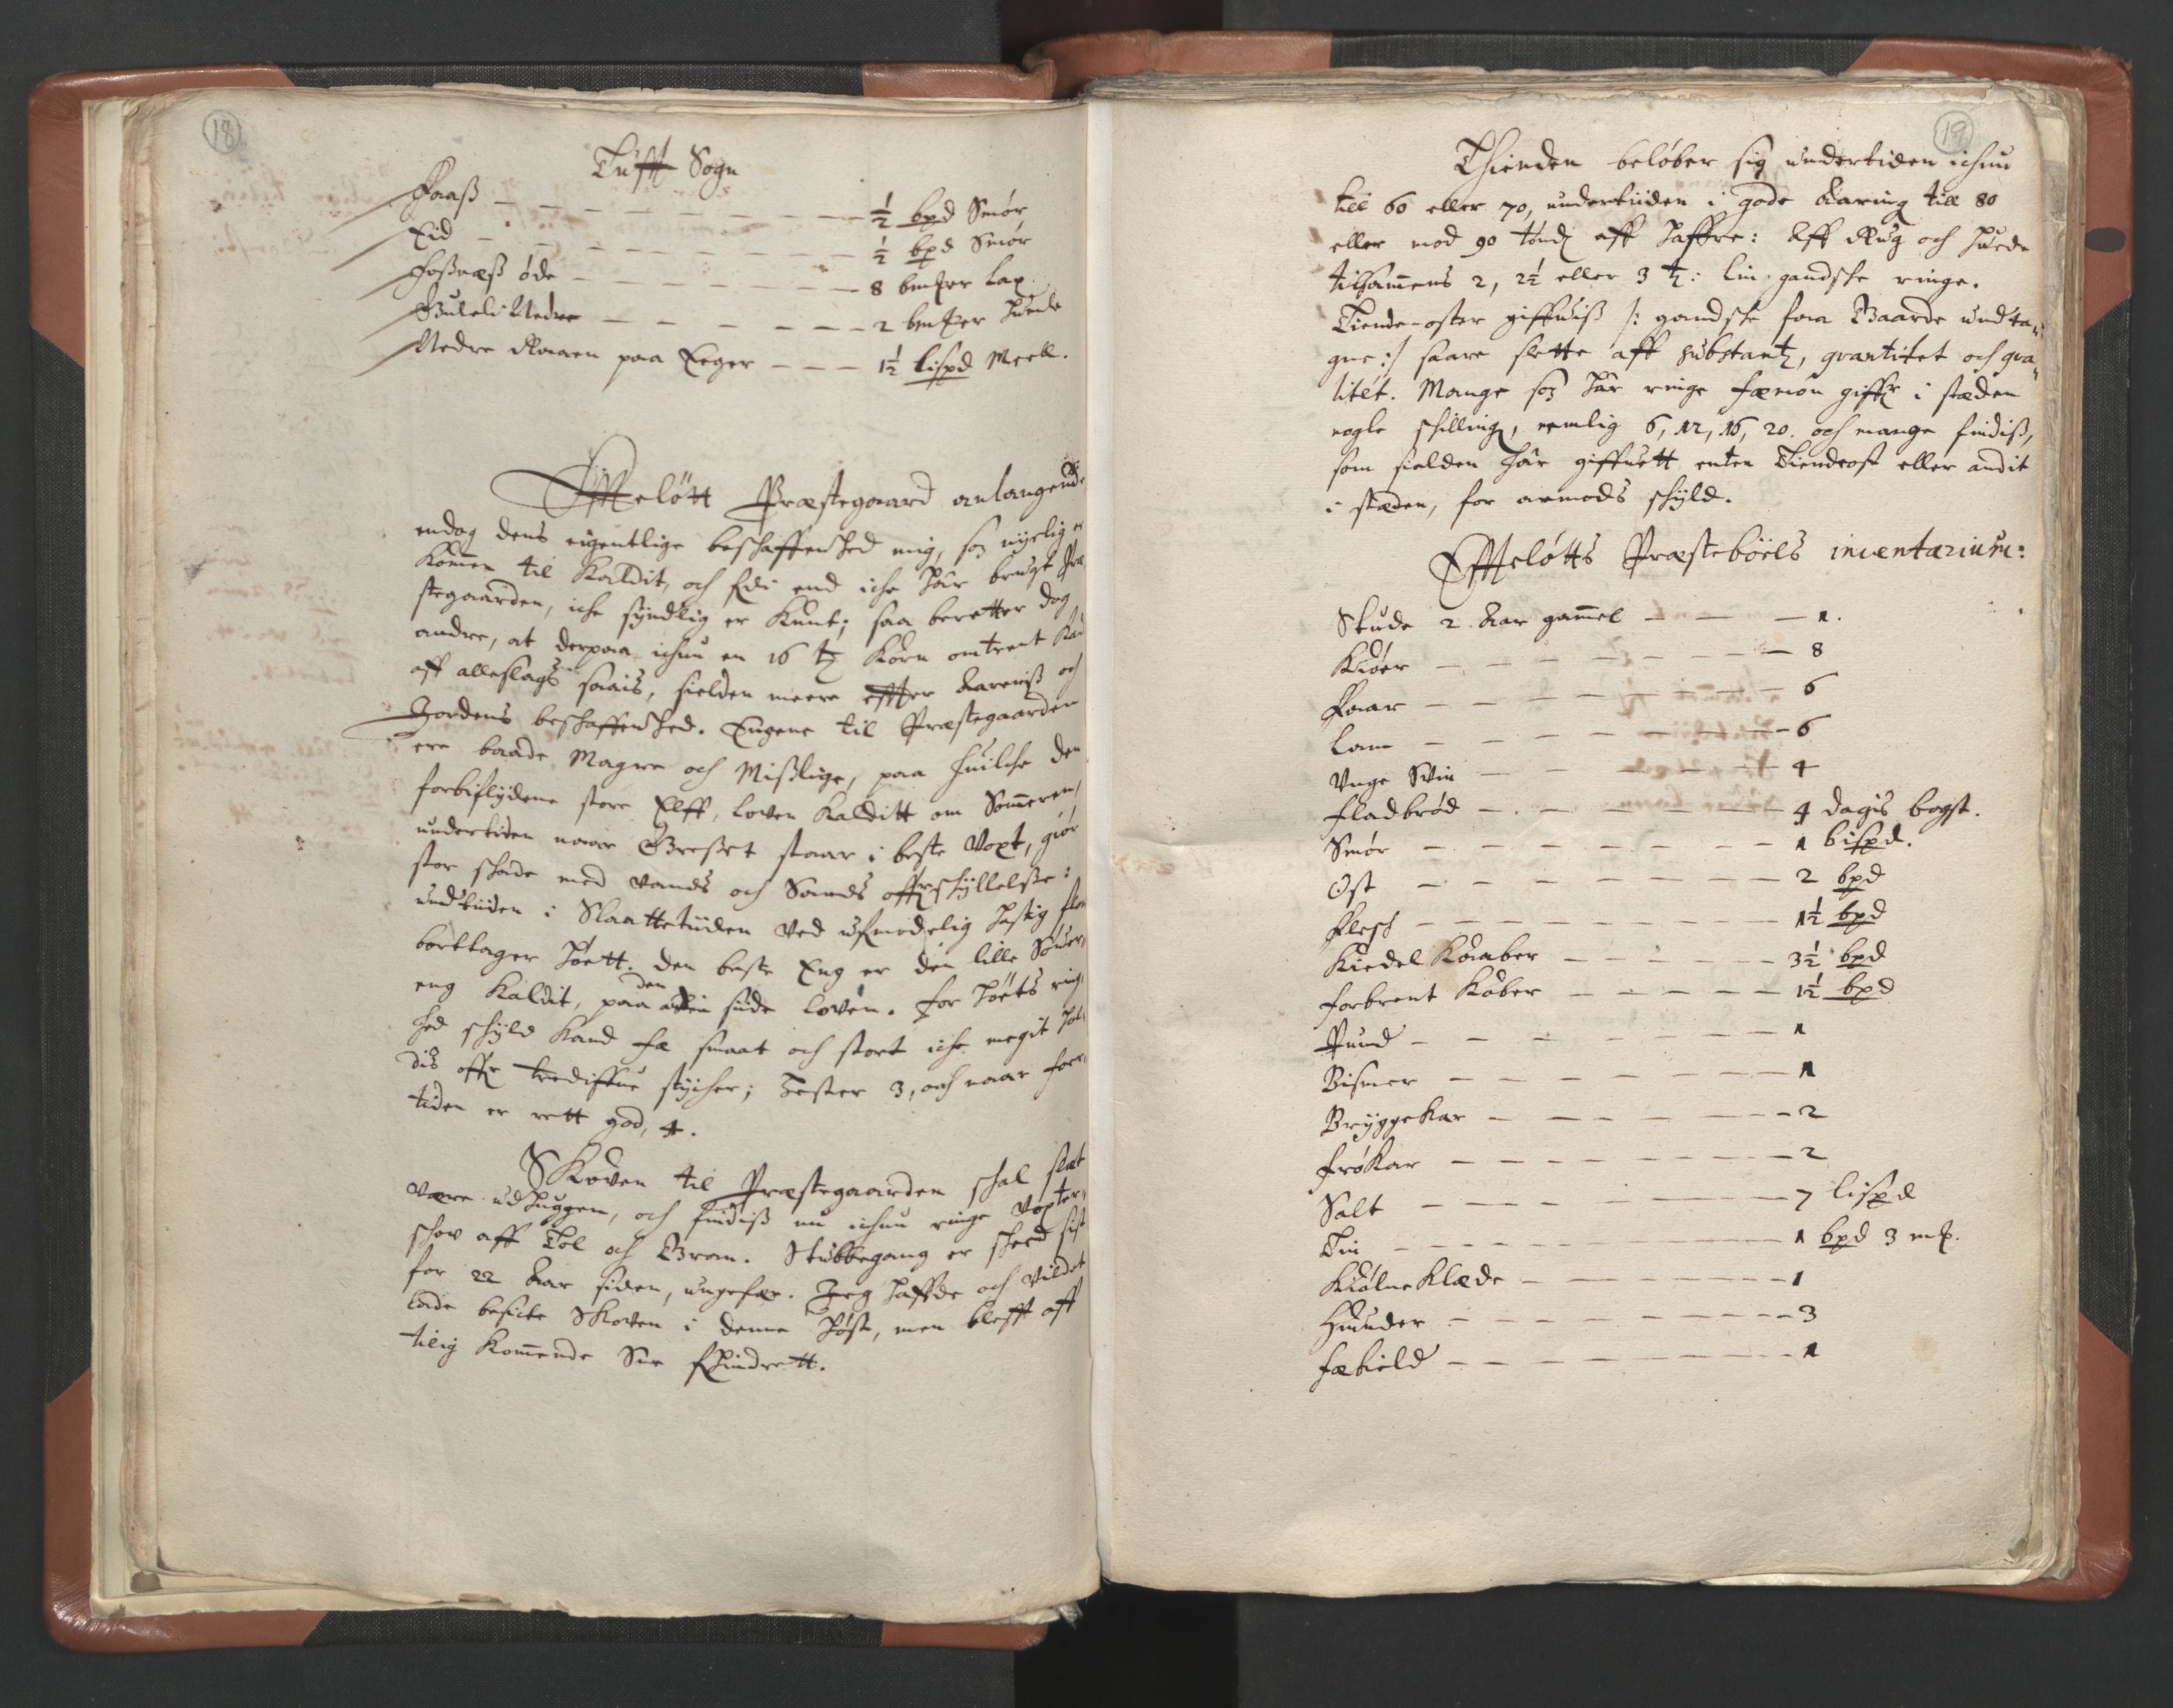 18
Tufft Sogn
Faaß — — — — — — — — ½ bpd Smör
Eid — — — — — — — — ½ bpd Smör
Foßnæß øde — — — — — — — 8 bmker Lax
Guleli Nedre — — — — — — — 2 bmker Huude
Nedre Raaen paa Eeger — — — 1½ lispd Meell.
Effteløtt Præstegaard anlangende
endog dens eigentlige beschaffenhed mig, som nyelig er
kommen til Kaldit, och fdi end iche har brugt Præ
stegaarden, iche synderlig er kunt; saa beretter dog
andre, at derpaa ichun en 16 tr Korn omtrent kand
aff alleslags saais, sielden meere effter Aareniß och
Jordens beschaffenhed. Engene til Præstegaarden
ere baade Magre och Mißlige, paa huilche den
forbiflydene store Elff, Loven kalditt om Sommeren,
undertiden naar Græßet staar i beste Voxt, giør
stor schade med Vands och Sands offrschyllelße:
undtiiden i Slaattetiiden ved ufmodelig hastig flom
borttager Høett. Den beste Eng er den lille Søuer,
eng kaldit, paa den siide Loven. For Höets ring,
hed schyld kand fæ smaat och stort iche megit hol,
dis offr trediffue stycher; Hester 3, och naar foer,
tiden er rett god, 4.
Skoven til Præstegaarden schal slæt
være udhuggen, och findiß nu ichun ringe Voxter,
schov aff Tol och Gran. Stubbegang er scheed sist
for 22 Aar siden, ungefær. Jeg haffde och vildet
lade besicte Skoven i denne Høst, men bleff aff
tilig kommende Sne fhindrett.
19
Thienden beløber sig undertiden ichun
till 60 eller 70, undertiiden i gode Aaring till 80
eller mod 90 tønd aff Haffre: Aff Rug och Huede
tilsammens 2, 2½ eller 3 tr: Lin gandsche ringe.
Tiendenoster giffuiß /: gandsche faa Gaarde undta,
gne :/ saare slette aff substantz, qvantitet och qva,
litét. Mange som har ringe fæmon giffr i stæden
nogle schilling, nemlig 6, 12, 16, 20. och mange findiß,
som sielden har giffuett enten Tiendeost eller andit
i stæden, for armods schyld.
Effteløtts Præstebøels inventarium:
Stude 2 Aar gammel — — — 1.
Kiøer — — — — — — — 8
Faar — — — — — — — 6
Lam — — — — — — — 6
Unge Svin — — — — — — 4
Fladbrød — — — — — — 4 dagis bagst.
Smør — — — — — — — 1 bispd.
Ost — — — — — — — 2 bpd
Flesch — — — — — — — 1½ bpd
Kiedel Kaaber — — — — — 3½ bpd
Forbrent Kaaber — — — — — 1½ bpd
Pund — — — — — — — 1
Bismer — — — — — — — 1
Bryggekar — — — — — — 2
Frøkar — — — — — — — 2
Salt — — — — — — — 7 lispd
Tin — — — — — — — 1 bpd 3 mk.
Kiølneklæde — — — — — — 1
Huuder — — — — — — — 3
Fæbield — — — — — — — 1